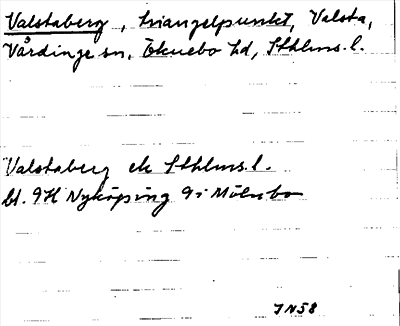 Valstaberg, triangelpunkt, Valsta,
Vårdinge sn, Öknebo hd, Sthlms. l.
Valstaberg ek Sthlms. l.
bl. 9H Nyköping 9i Mölnbo
IN58